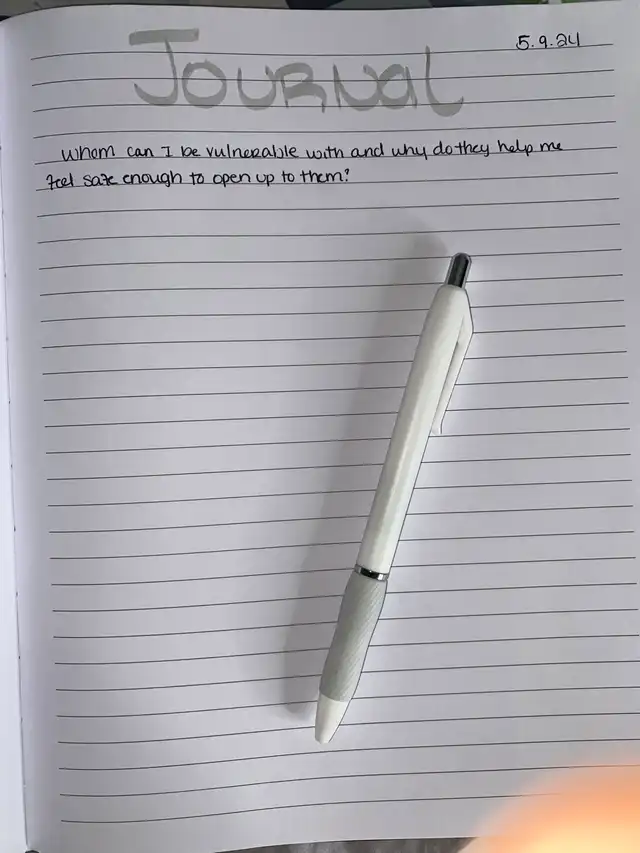 5.9.24
JOURNAL
Whom can I be vulnerable with and why do they help me
feel safe enough to open up to them?